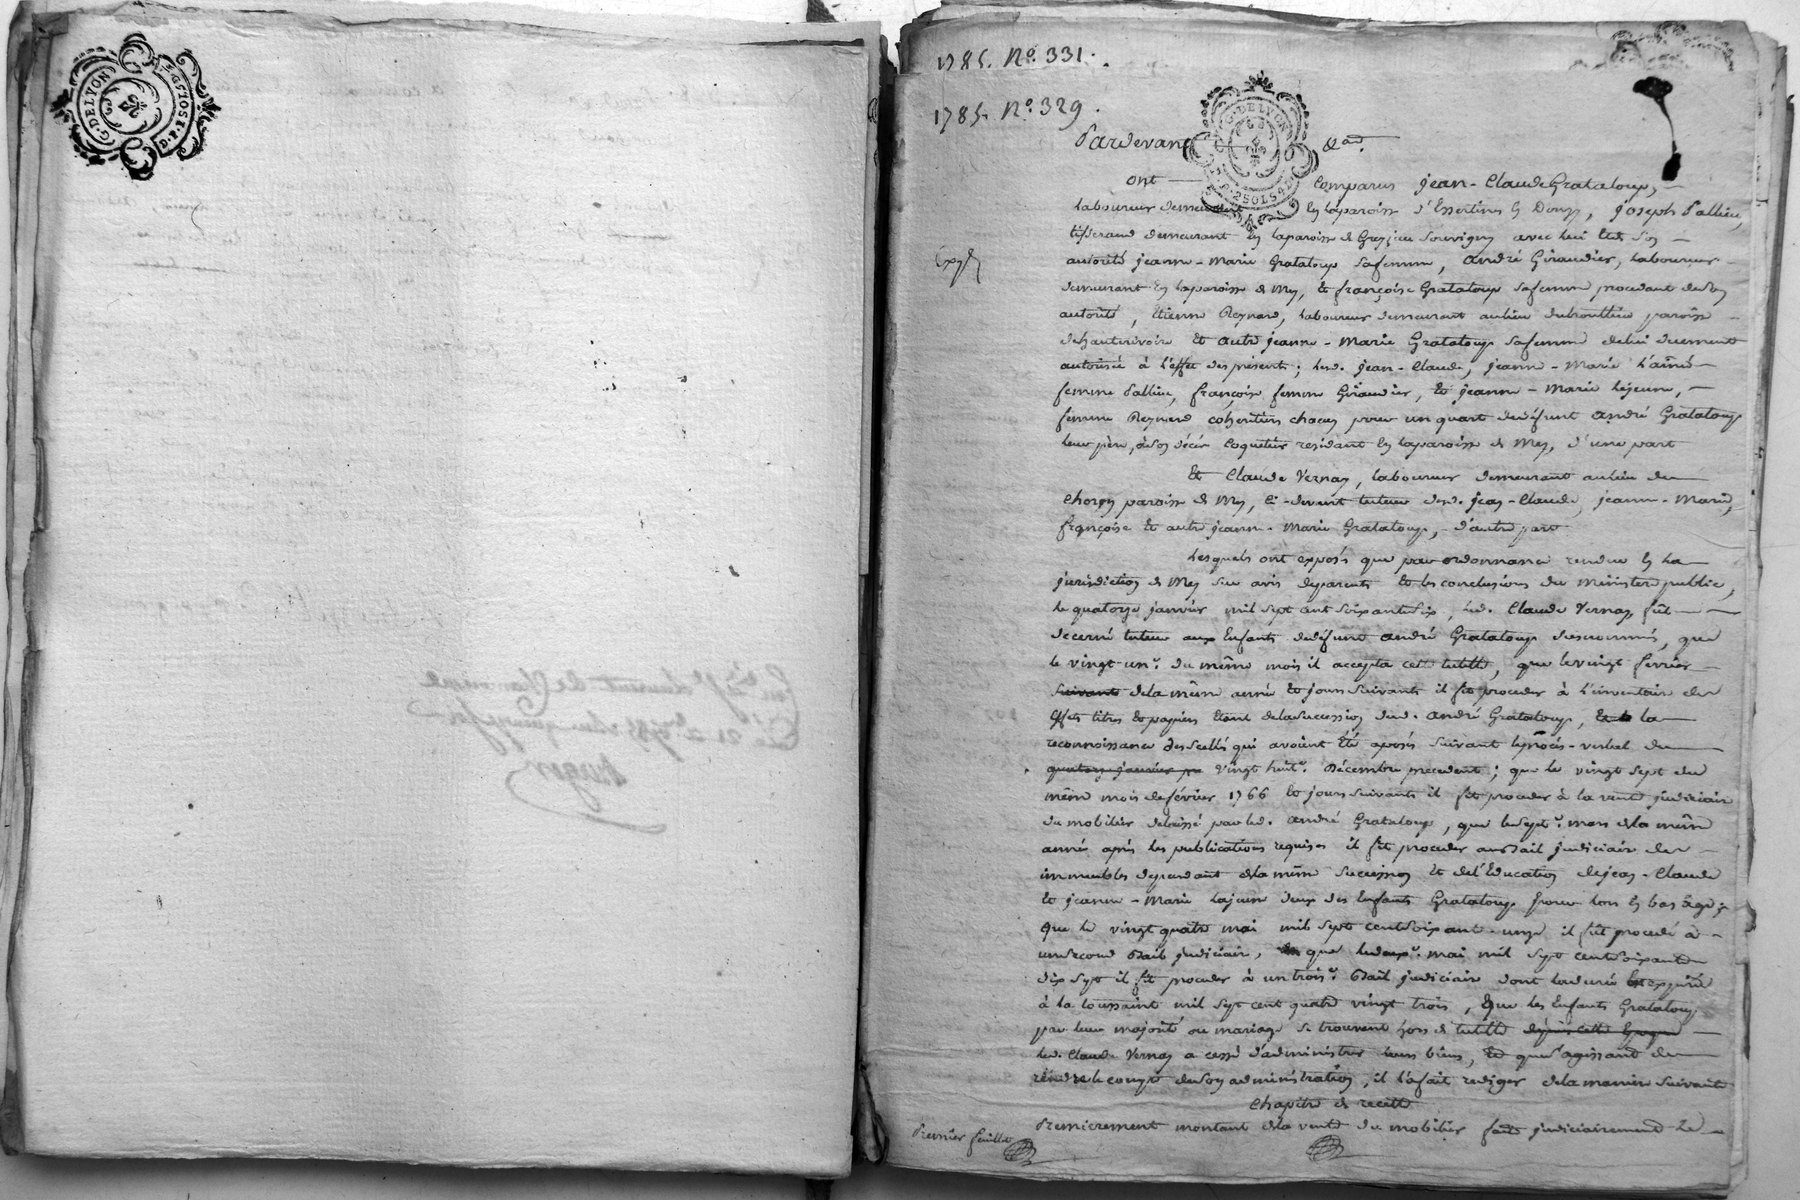 G. DE LYON
1785. N.º 331.
1785. N.º 329.
G. DE LYON
2 SOLS 4 D
Pardevant &a.
ont comparus jean-Claude Grataloup,
laboureur demeurant en la paroisse d'Essertines en Donzy, joseph Pallieu,
tisserand demeurant en la paroisse de Grezieu Souvigny avec lui et de son
autorité jeanne-Marie Grataloup sa femme, André Giraudier, laboureur
demeurant en la paroisse de Mey, et françoise Grataloup sa femme procedant de son
autorité, Etienne Reynard, laboureur demeurant au lieu paroisse
de hauterivoire et autre jeanne-Marie Grataloup sa femme de lui duement
autorisée à l'effet des présentes; lesd. jean-Claude, jeanne-Marie l'aînée
femme Pallieu, françoise femme Giraudier, et jeanne-Marie lajeune,
femme Reynard coheritiers chacun pour un quart dudéfunt André Grataloup
leur père, à son décès Coquetier residant en la paroisse de Mey, d'une part
Et Claude Vernay, laboureur demeurant au lieu de
paroisse de Mey, ci-devant tuteur desd. jean-Claude, jeanne-Marie,
françoise et autre jeanne-Marie Grataloup, d'autre part
Lesquels ont exposés que par ordonnance rendue en la
jurisdiction de Mey sur avis de parents et les conclusions du Ministere public,
le quatorze janvier mil sept cent soixante six, led. Claude Vernay, fût
decerné tuteur aux Enfants dudéfunt André Grataloup susnommés, que
le vingt-un.e du même mois il accepta cette tutelle, que le vingt fevrier
suivant de la même année et jours suivants il fit proceder à l'inventaire des
effets titres et papiers étant de la succession dud. André Grataloup, et à la
reconnoissance des scellés qui avoient été aposés suivant le procès-verbal du
quatorze janvier vingt huit.e Décembre precedent; que le vingt sept du
même mois de février 1766 et jours suivants il fit proceder à la vente judiciaire
du mobilier delaissé par led. André Grataloup, que le sept.e mars de la même
année après les publications requises il fit proceder au Bail judiciaire des
immeubles dependant de la même succession et de l'Education de jean-Claude
et jeanne-Marie lajeune deux des Enfants Grataloup pour lors en bas âge;
que le vingt quatre mai mil sept cent soixante-onze il fût procedé à
un second Bail judiciaire, que le deux.e mai mil sept cent soixante
dix sept il fit proceder à un trois.e Bail judiciaire dont la durée est expirée
à la toussaint mil sept cent quatre vingt trois, que les Enfants Grataloup
par leur majorité ou mariage se trouvent hors de tutelle depuis cette Epoque
led. Claude Vernay a cessé d'administrer leurs biens, et que s'agissant de
rendre le compte de son administration, il l'a fait rediger de la maniere suivante
Chapitre de recette
Premierement montant de la vente du mobilier faite judiciairement le
Premier feuillet